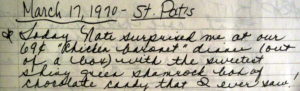 March 17, 1970 - St. Pat's
Today Nate surprised me at our
69¢ "Chicken Cabaret" dinner (out
of a box) with the sweetest
shiny green shamrock box of
chocolate candy that I ever saw!